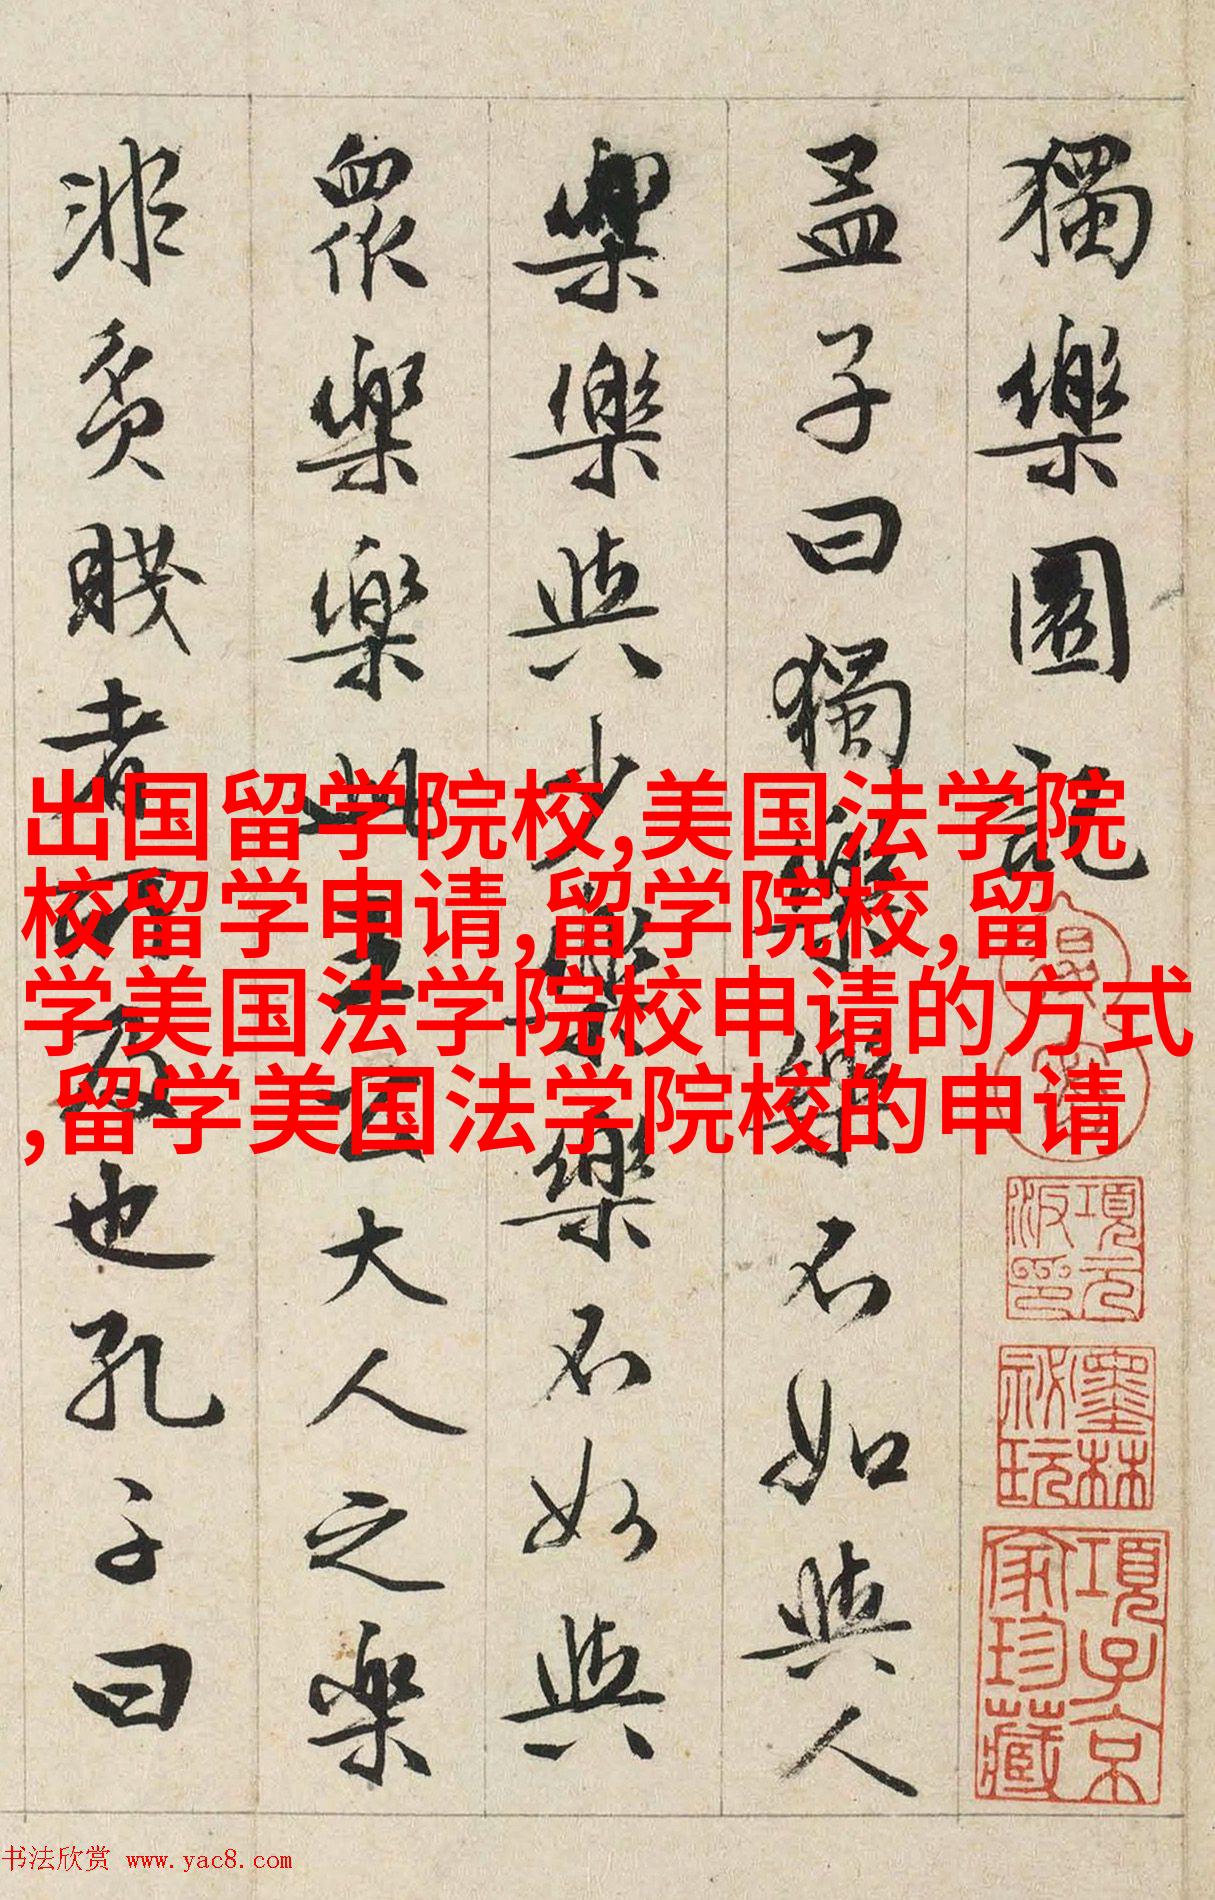 獨樂園記
孟子曰獨樂樂不如與人
樂樂與少樂樂不如與
衆樂樂此王公大人之樂
非貧賤者所及也孔子曰
出国留学院校,美国法学院
校留学申请,留学院校,留
学美国法学院校申请的方式
,留学美国法学院校的申请
項元汴印
墨林祕玩
項子京家珍藏
书法欣赏 www.yac8.com